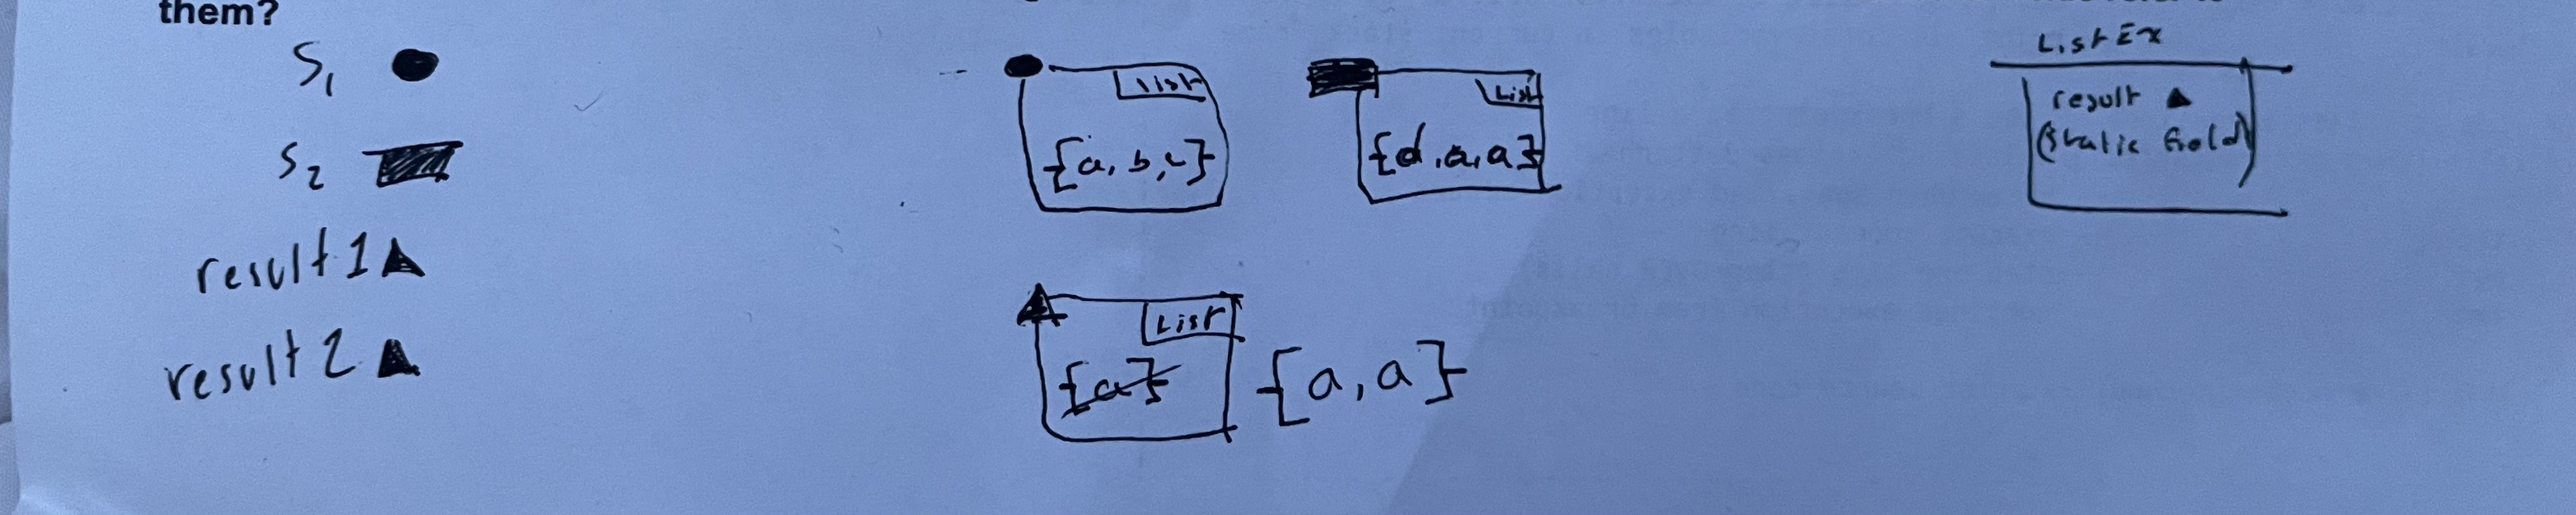 them?
S1
S2
result 1
result 2
List
{a, b, c}
List
{d, a, a}
List
{a}
{a, a}
List Ex
result
(static field)